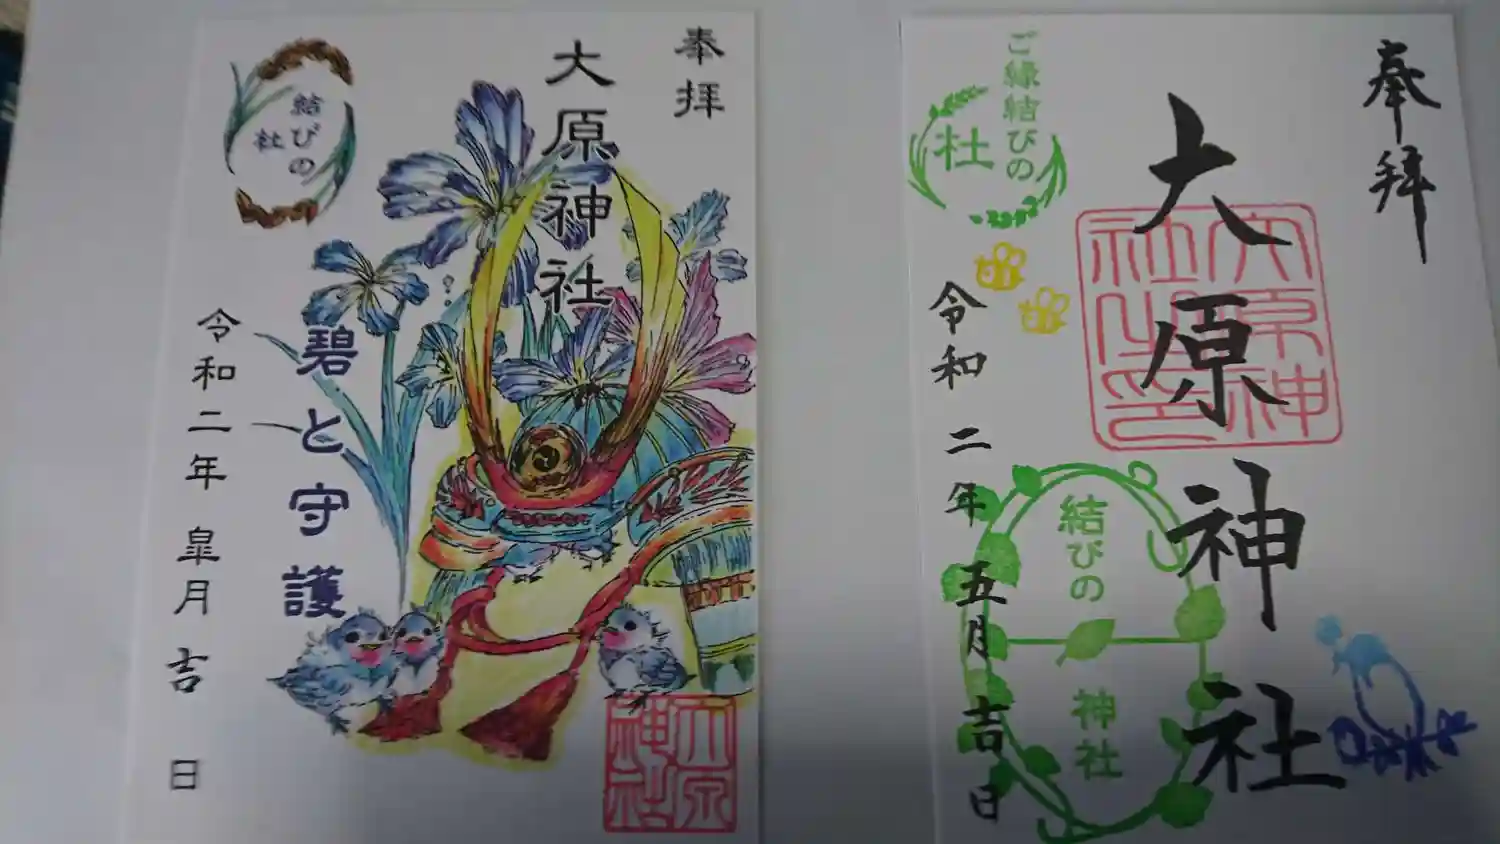 奉拝
大原神社
碧と守護
結びの
社
令和二年 皐月 吉 日
大原
神社
奉拝
大原神社
大原神
社之印
ご縁結びの
社
結びの
神社
令和 二年 五月 吉日